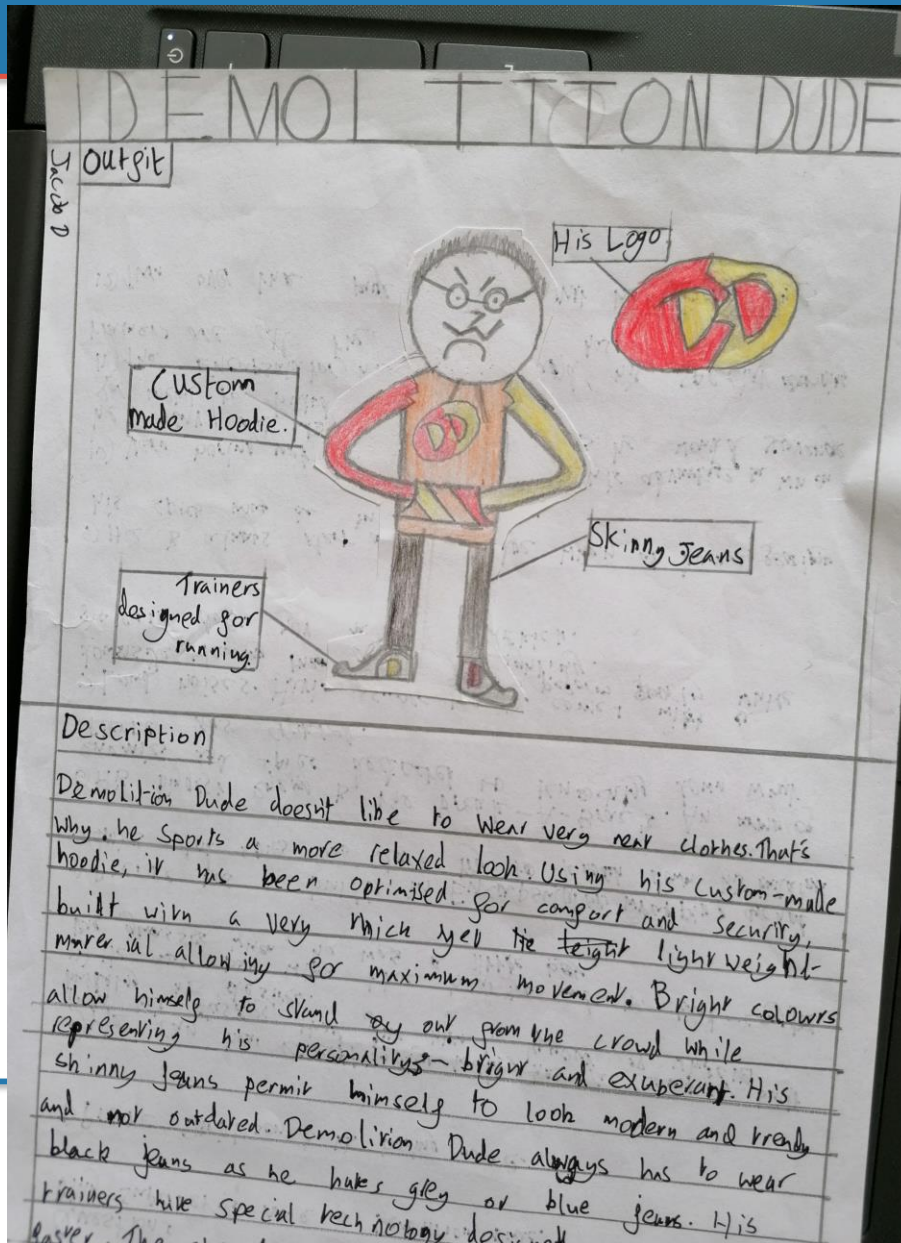 DEMOLITION DUDE
Jacob D
Outfit
His Logo
DD
Custom
made Hoodie.
DD
Skinny Jeans
Trainers
designed for
running.
Description
Demolition Dude doesnt like to wear very neat clothes. That's
why he sports a more relaxed look. Using his custom-made
hoodie, it has been optimised for comfort and security,
built with a very thick yet lightweight
material allowing for maximum movement. Bright colours
allow himself to stand out from the crowd while
representing his personality - bright and exuberant. His
skinny jeans permit himself to look modern and trendy
and not outdated. Demolition Dude always has to wear
black jeans as he hates grey or blue jeans. His
trainers have special technology
faster. The